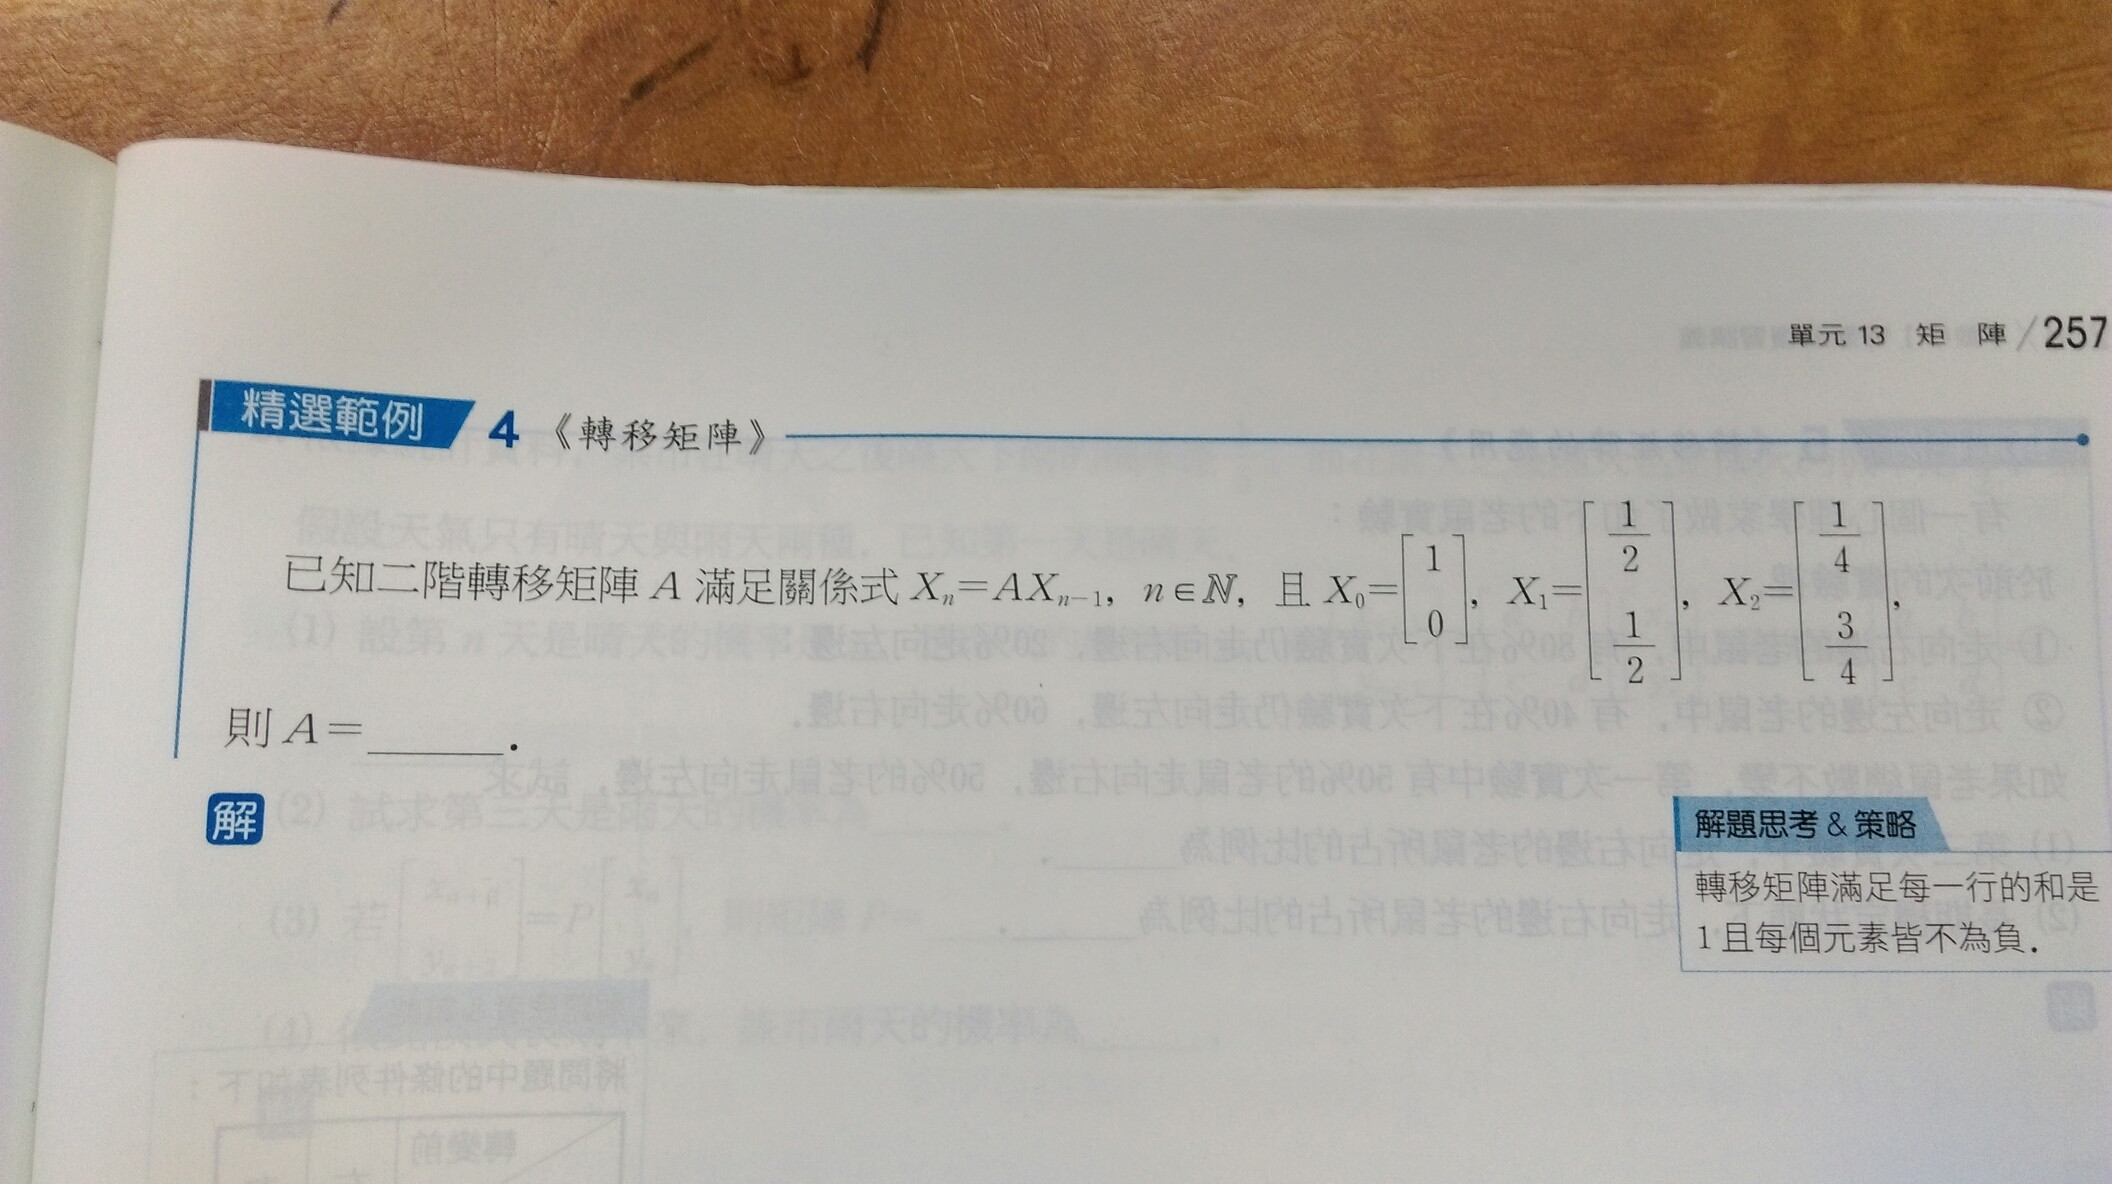 單元 13 矩 陣 / 257
精選範例 4 《轉移矩陣》
已知二階轉移矩陣 A 滿足關係式 Xₙ=AXₙ₋₁, n∈ℕ, 且 X₀=[1 0], X₁=[1/2 1/2], X₂=[1/4 3/4],
則 A=______.
解
解題思考 & 策略
轉移矩陣滿足每一行的和是
1 且每個元素皆不為負.